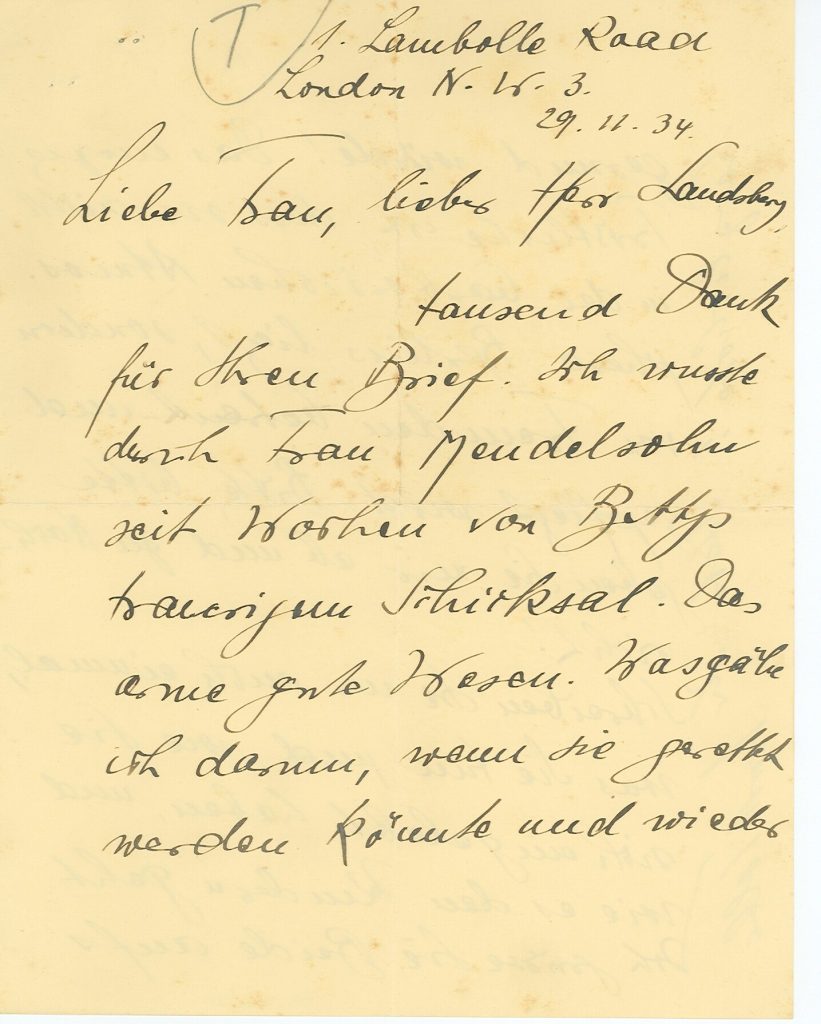 T
1. Lambolle Road
London N. W. 3.
29. 11. 34.
Liebe Frau, lieber Herr Landsberg,
tausend Dank
für Ihren Brief. Ich wusste
durch Frau Mendelsohn
seit Wochen von Bettys
traurigem Schicksal. Das
arme gute Wesen. Was gäbe
ich darum, wenn sie gerettet
werden könnte und wieder